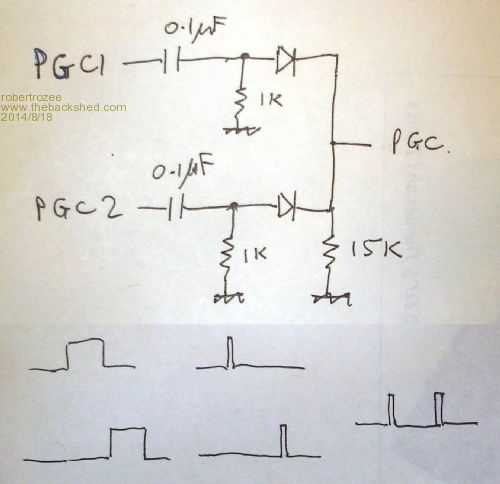 0.1µF
PGC1
1K
robertrozee
www.thebackshed.com
2014/8/18
PGC.
0.1µF
PGC2
1K
15K